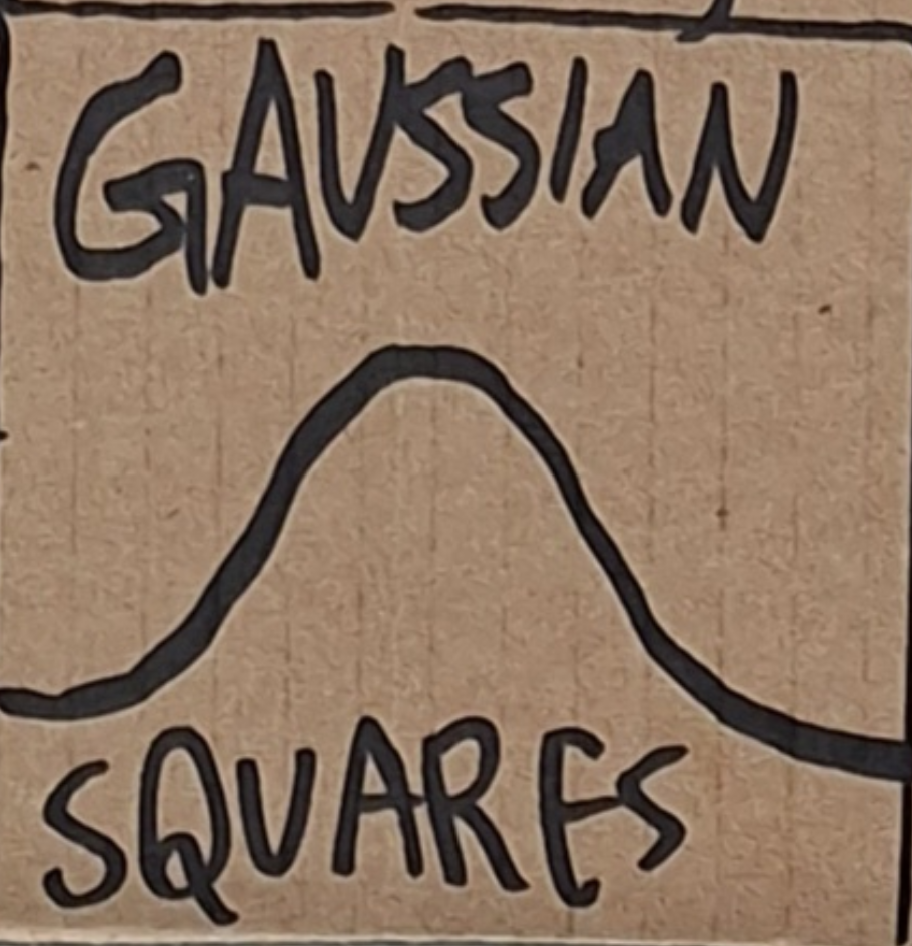 GAUSSIAN
SQUARES